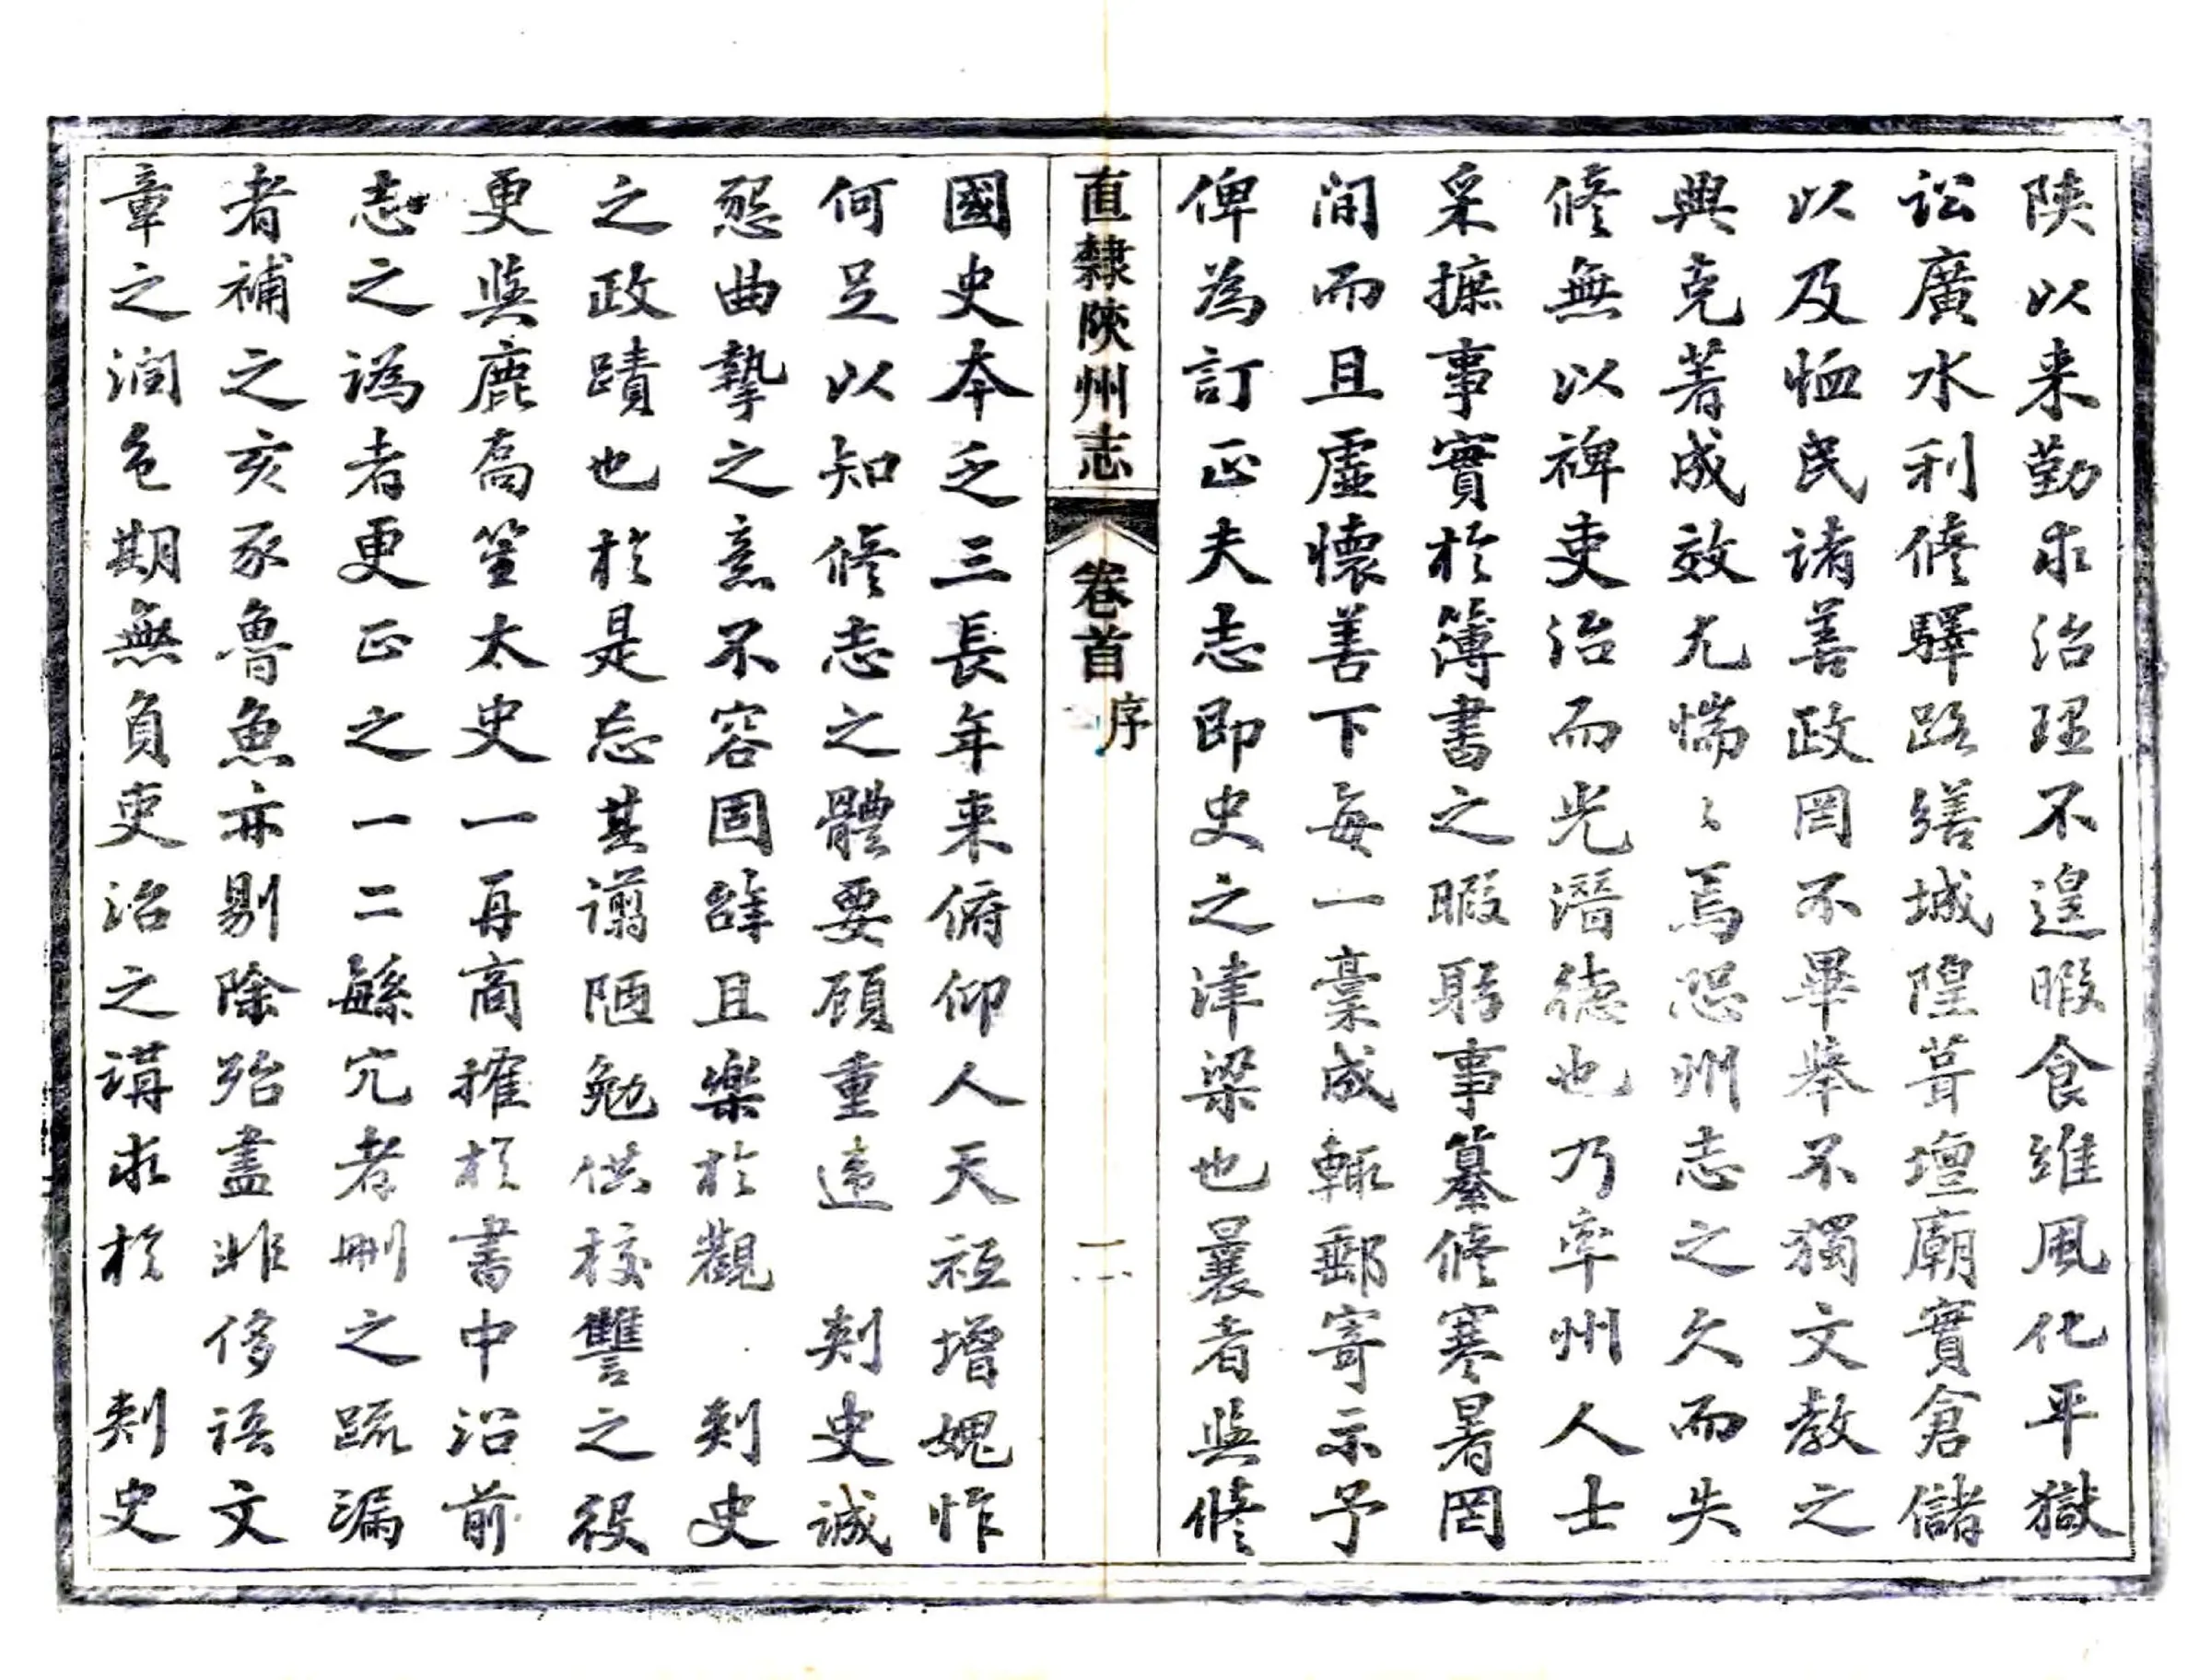 陝以来勤求治理不遑暇食維風化平獄
訟廣水利修驛路繕城隍葺壇廟實倉儲
以及恤民諸善政罔不畢举不獨文教之
興克著成效尤惴〻焉恐州志之久而失
修無以裨吏治而光潛德也乃率州人士
采摭事實於簿書之暇躬事纂修寒暑罔
间而且虚懷善下每一藁成輒郵寄示予
俾為訂正夫志即史之津梁也曩者與修
直隸陝州志 卷首 序 二
國史本乏三長年来俯仰人天祗增媿怍
何足以知修志之體要顧重違 刺史誠
懇曲摯之意不容固辞且樂於觀 刺史
之政蹟也於是忘其谫陋勉供校讐之役
更與鹿喬笙太史一再商搉於書中沿前
志之譌者更正之一二繇冗者删之疏漏
者補之亥豕魯魚亦剔除殆盡雖侈语文
章之润色期無負吏治之講求於 刺史